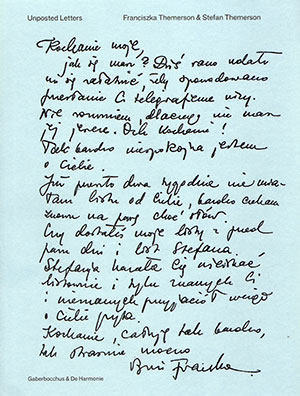 Unposted Letters
Franciszka Themerson & Stefan Themerson
Kochanie moje,
jak się masz? Dziś rano udało
mi się załatwić żeby spowodowano
przesłanie Ci telegrafem wizy.
Nie rozumiem dlaczego nie masz
jej jeszcze. Och Kochanie!
Tak bardzo niespokojna jestem
o Ciebie.
Już prawie dwa tygodnie nie mia-
łam listu od Ciebie, bardzo czekam
znowu na parę choć słów.
Czy dostałeś moje listy z przed
paru dni i list Stefana,
Stefania kazała Cię uściskać,
i tylu znanych Ci
i nieznanych przyjaciół wciąż
o Ciebie pyta.
Kochanie, całuję tak bardzo,
tak strasznie mocno
Franka
Gaberbocchus & De Harmonie